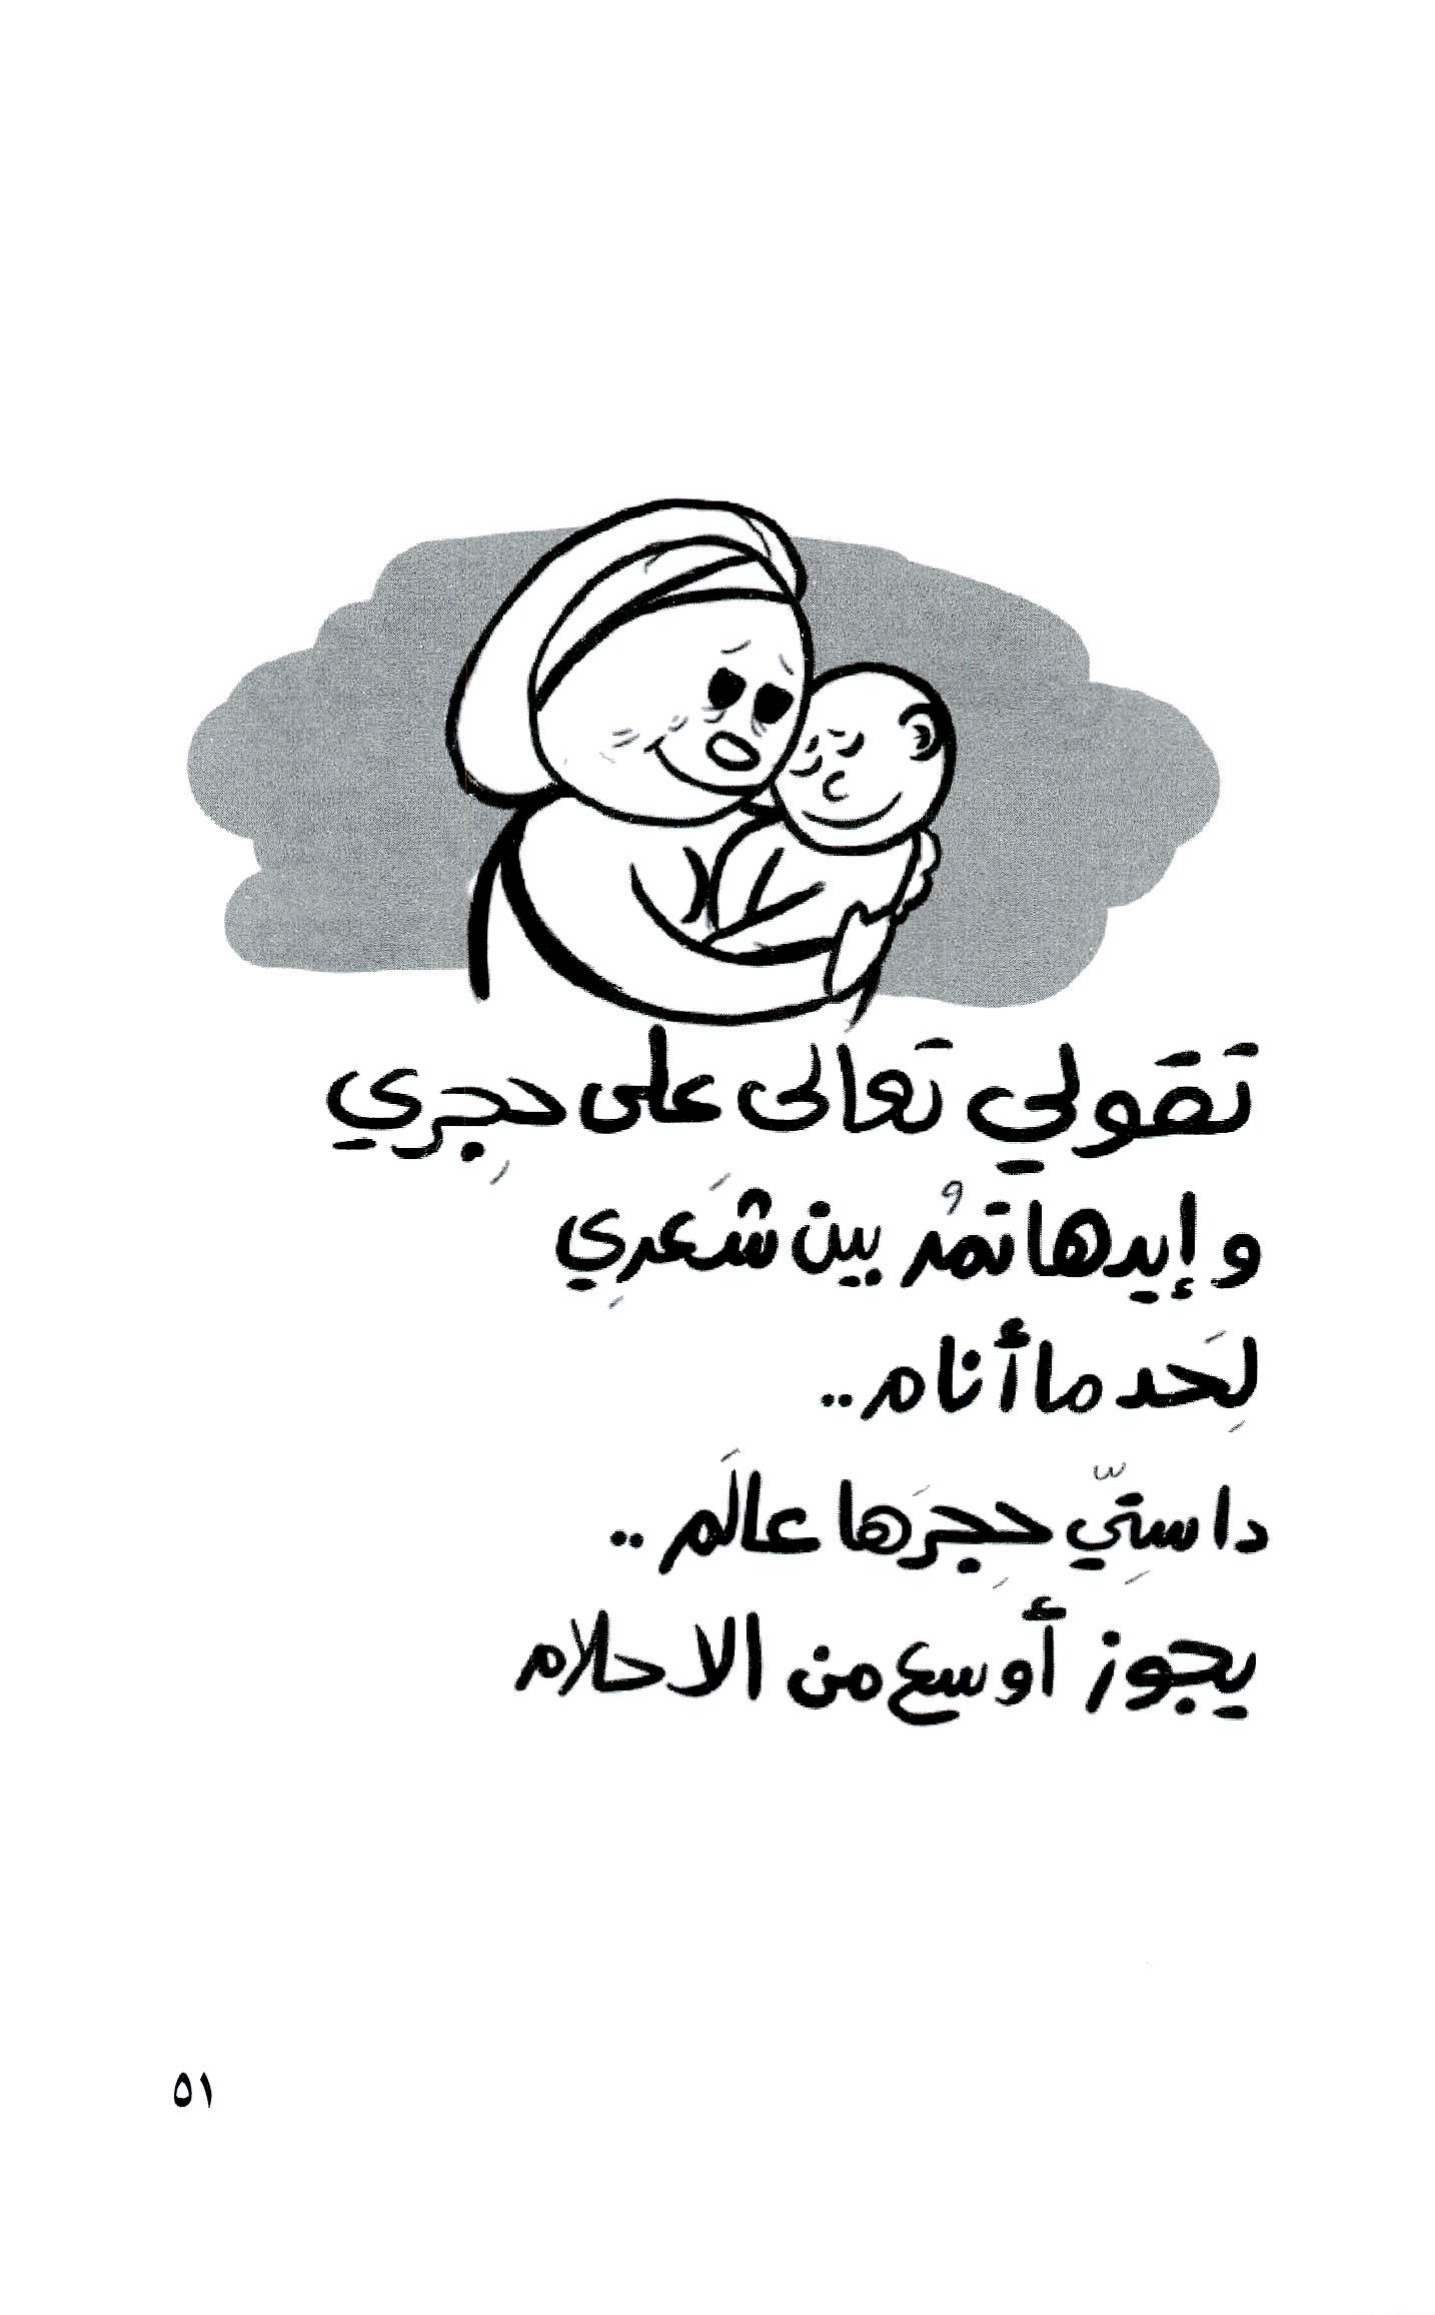 تَقولي تَعالى على حِجرِي
وإيدها تمُر بين شَعرِي
لِحَد ما أنام..
دا سِتِّي حِجرَها عالَم..
يجوز أَوسع من الاحلام
٥١